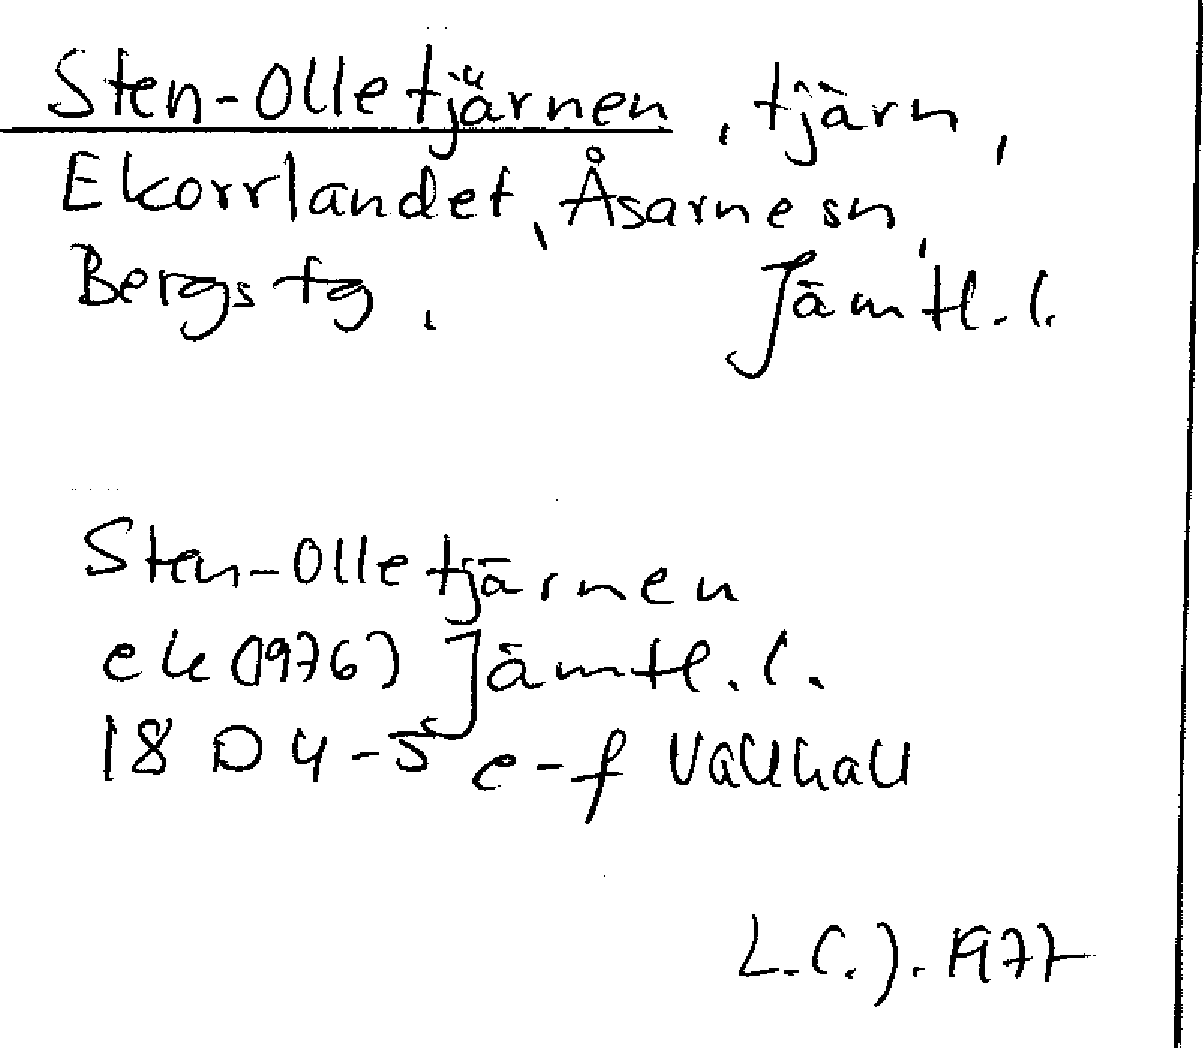 Sten-Olletjärnen, tjärn,
Ekorrlandet, Åsarne sn,
Bergs tg, Jämtl.l.
Sten-Olletjärnen
ek (1976) Jämtl.l.
18 D 4-5 e-f Vallhall
L.C.J. 1977